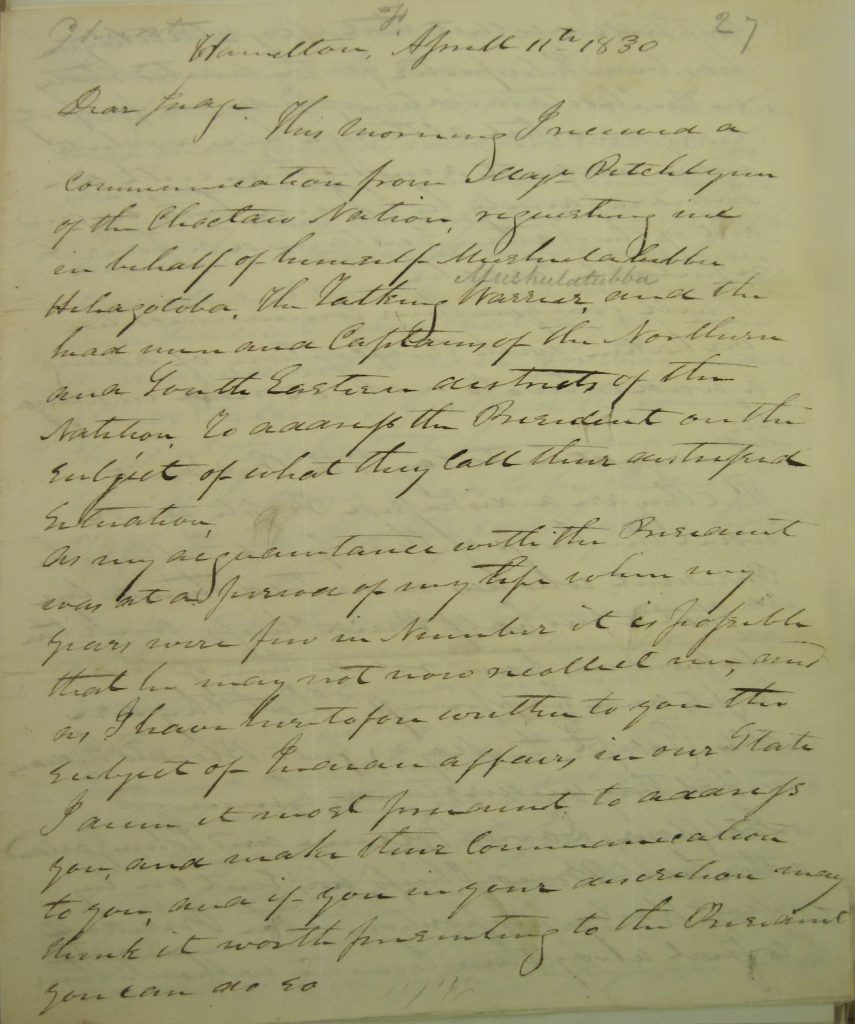 27
Hamilton, Aprill 11th 1830
Dear Judge.
This morning I received a
Communication from Majr Pitchlynn
of the Choctaw Nation, requesting me
in behalf of himself Mushulatubba
Mushulatubba
Hehagotoba, The Talking Warrior, and the
head men and Captains, of the Northern
and South Eastern districts of the
Natition, To address the President on the
subject of what they Call their distressed
Situation,
As my acquaintance with the President
was at a period of my life when my
years were few in Number it is possible
that he may not now recollect me, and
as I have heretofore written to you the
subject of Indian affairs in our State
I deem it most prudent, to address
you, and make their Communication
to you, and if you in your discretion may
think it worth presenting to the President
you can do so